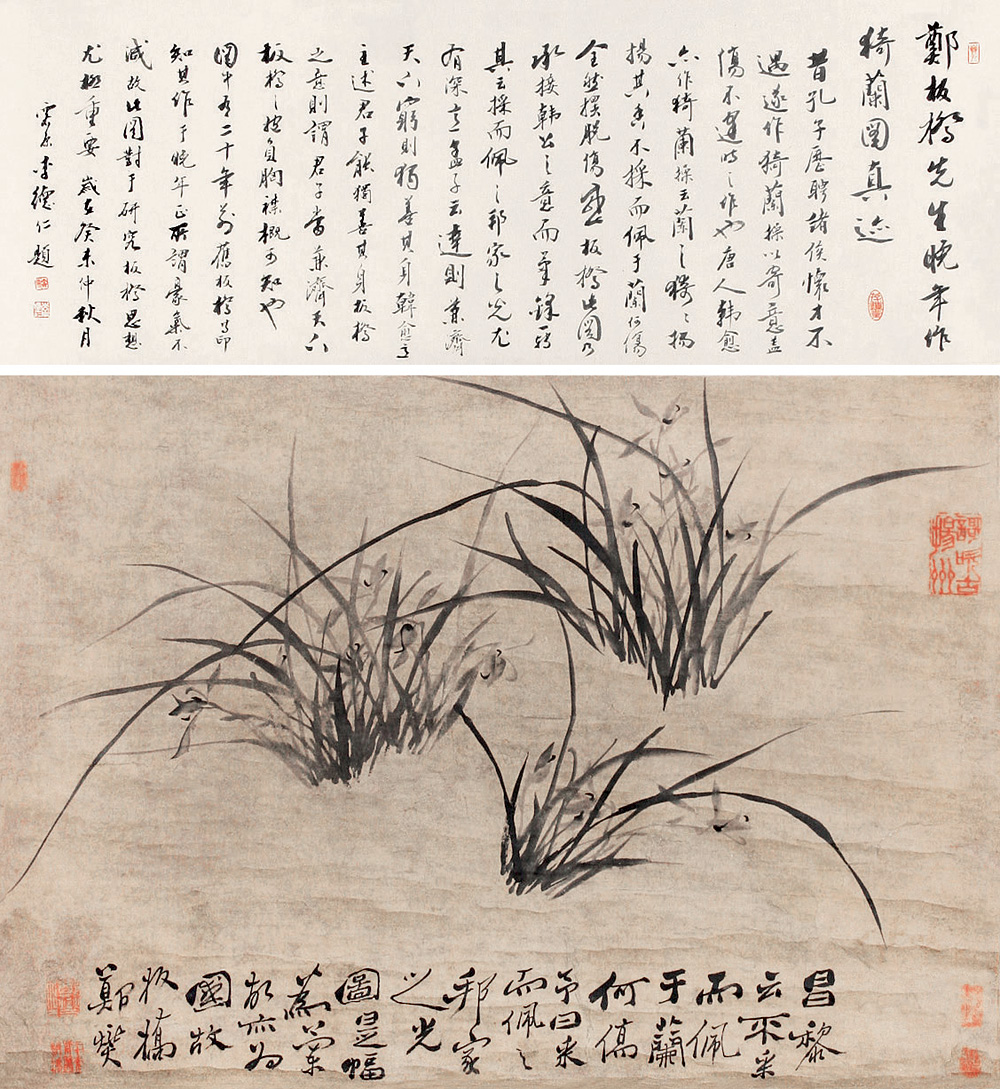 鄭板橋先生晚年作
猗蘭圖真迹
昔孔子歷聘諸侯懷才不
遇遂作猗蘭操以寄意盖
傷不逢時之作也唐人韩愈
亦作猗蘭操云蘭之猗猗揚
揚其香不採而佩于蘭何傷
全然摆脱傷感板橋此图乃
承接韩公之意而筆鋒
其云採而佩之邦家之光尤
有深意孟子云達則兼濟
天下窮則獨善其身韓愈
主述君子能獨善其身板橋
之意則謂君子當兼濟天下
板橋之抱負胸襟概可知也
图中有二十年前舊板橋印
知其作于晚年正所謂豪氣不
减故此图對于研究板橋思想
尤極重要歲在癸未仲秋月
李德仁題
謌吹古揚州
昌黎
云不采
而佩
于蘭
何傷
予曰采
而佩之
邦家
之光
圖是幅
蘭
故亦為
國故
板橋
鄭燮